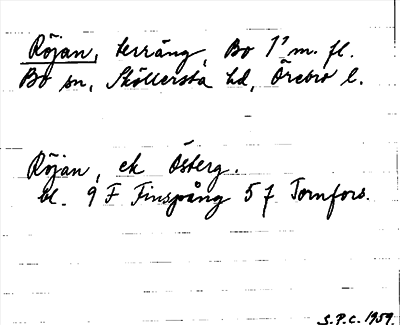 Röjan, terräng, Bo 1¹ m. fl.
Bo sn, Sköllersta hd, Örebro l.
Röjan, ek Österg.
bl. 9 F Finspång 5 f Tornfors.
S.P.C. 1959.